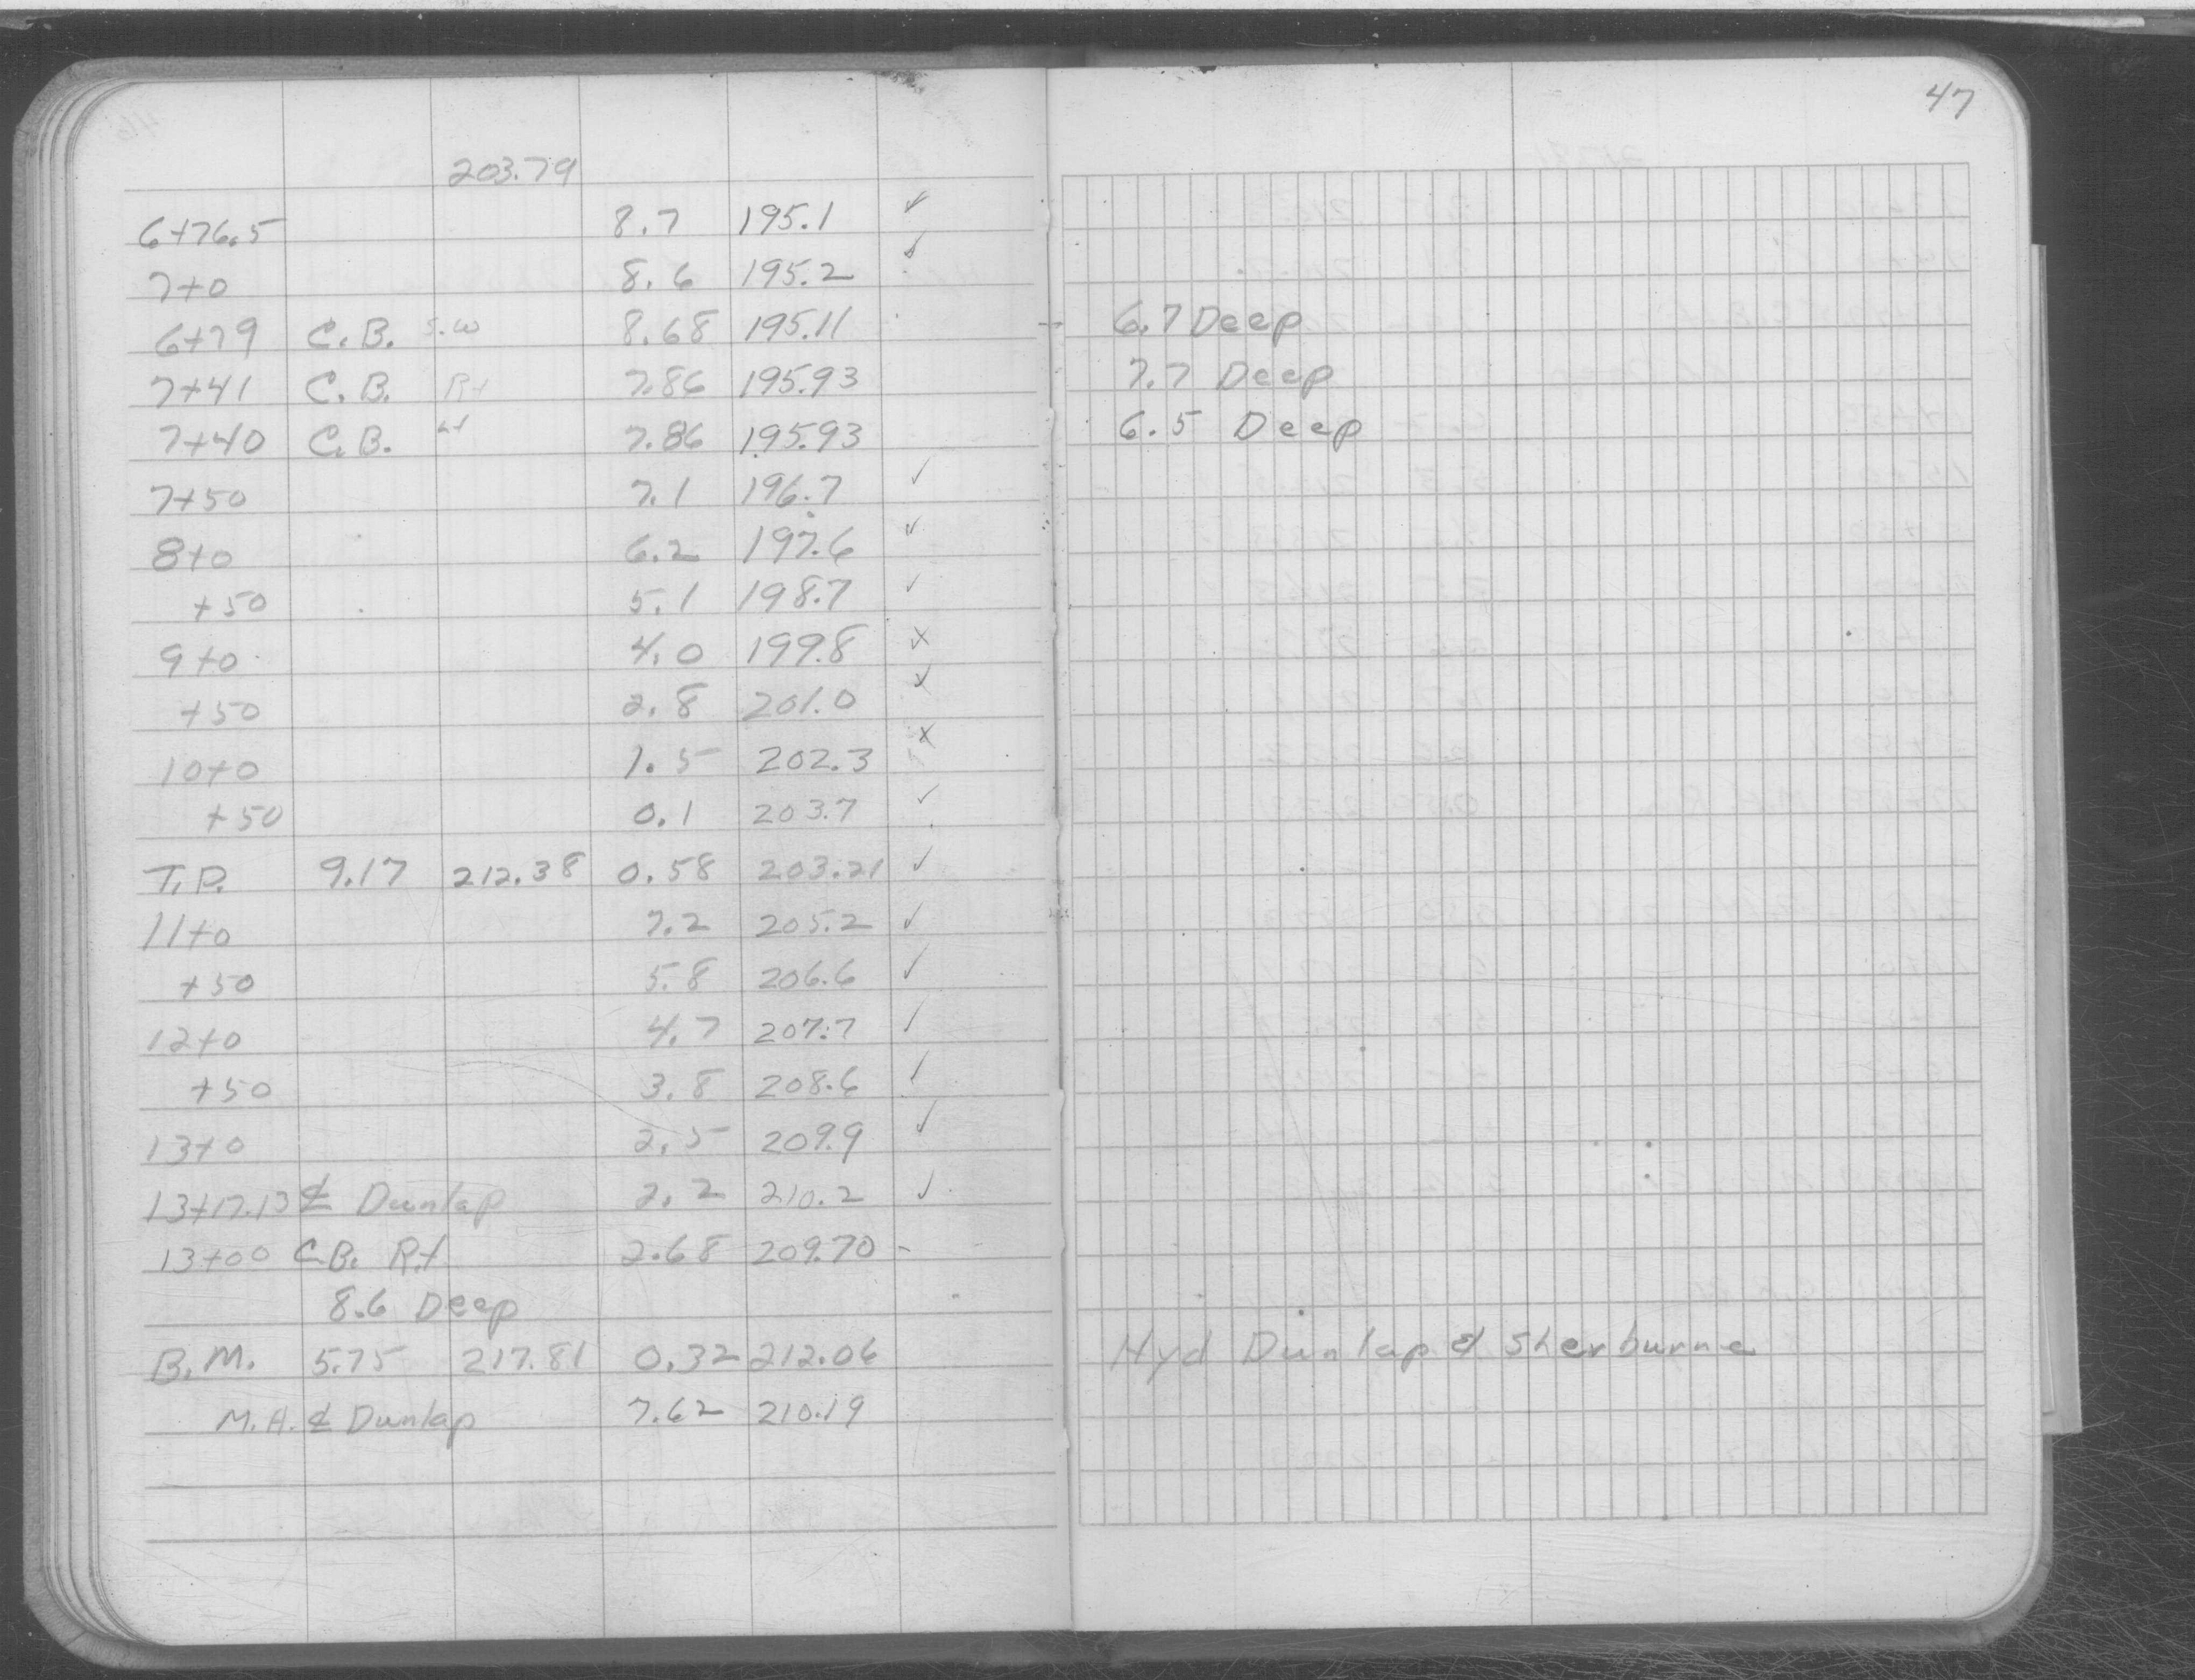 47
203.79
6+76.5 8.7 195.1 ✓
7+0 8.6 195.2 ✓
6+79 C.B. S.W 8.68 195.11 6.7 Deep
7+41 C.B. Rt 7.86 195.93 7.7 Deep
7+40 C.B. Lt 7.86 195.93 6.5 Deep
7+50 7.1 196.7 ✓
8+0 6.2 197.6 ✓
+50 5.1 198.7 ✓
9+0 4.0 199.8 x
+50 2.8 201.0 ✓
10+0 1.5 202.3 x
+50 0.1 203.7 ✓
T.P. 9.17 212.38 0.58 203.21 ✓
11+0 7.2 205.2 ✓
+50 5.8 206.6 ✓
12+0 4.7 207.7 ✓
+50 3.8 208.6 ✓
13+0 2.5 209.9 ✓
13+17.13 ℄ Dunlap 2.2 210.2 ✓
13+00 C.B. Rt 2.68 209.70 -
8.6 Deep
B.M. 5.75 217.81 0.32 212.06 Hyd Dunlap & Sherburne
M.H. ℄ Dunlap 7.62 210.19